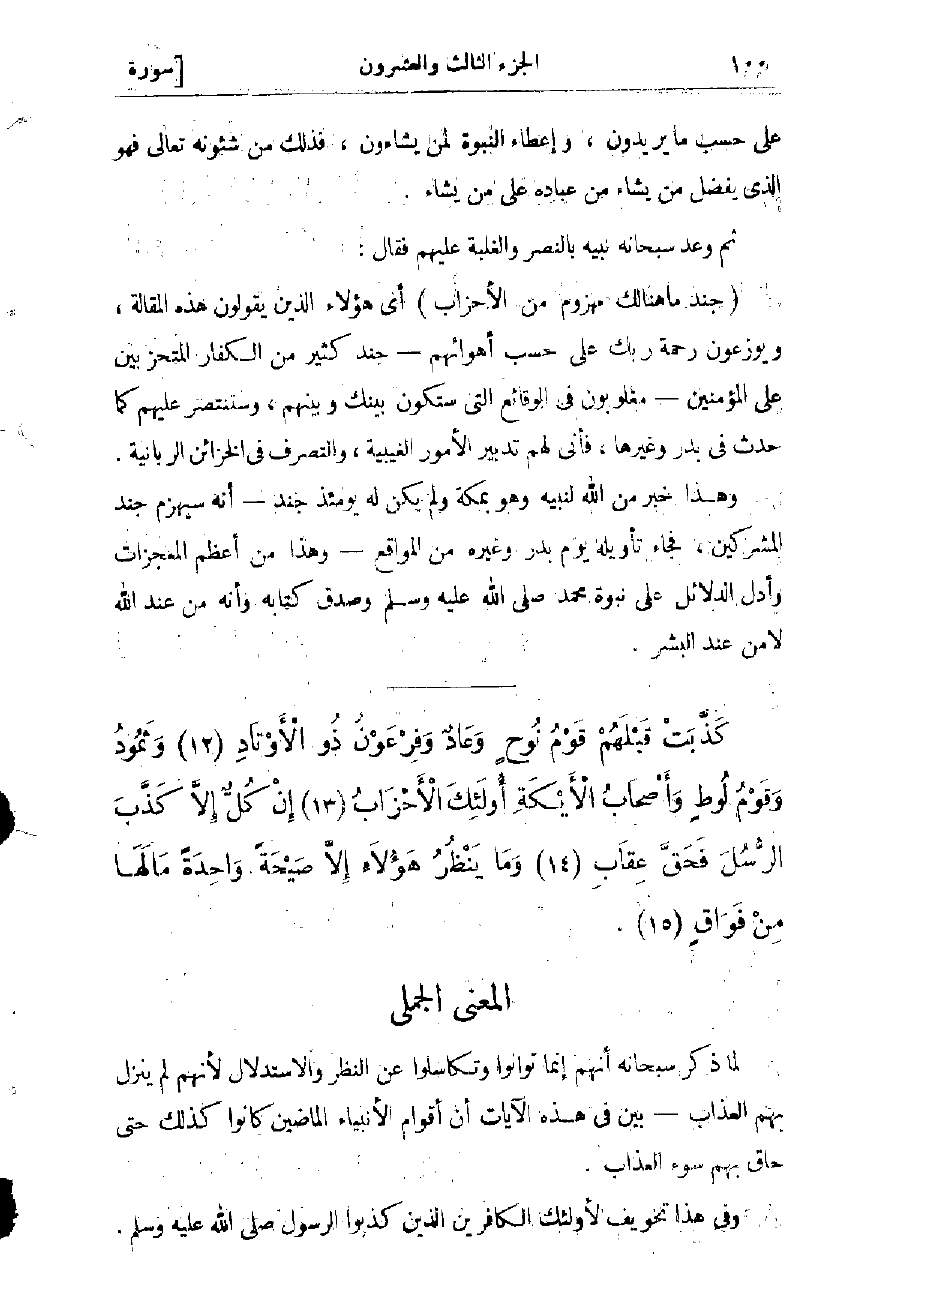 الجزء الثالث والعشرون [سورة
على حسب ما يريدون ، وإعطاء النبوة لمن يشاءون ، فذلك من شئونه تعالى فهو
الذى يفضل من يشاء من عباده على من يشاء .
ثم وعد سبحانه نبيه بالنصر والغلبة عليهم فقال :
( جند ما هنالك مهزوم من الأحزاب ) أى هؤلاء الذين يقولون هذه المقالة ،
ويوزعون رحمة ربك على حسب أهوائهم — جند كثير من الكفار المتحزبين
على المؤمنين — مغلوبون فى الوقائع التى ستكون بينك وبينهم ، وستنتصر عليهم كما
حدث فى بدر وغيرها ، فأنى لهم تدبير الأمور الغيبية ، والتصرف فى الخزائن الربانية .
وهذا خبر من الله لنبيه وهو بمكة ولم يكن له يومئذ جند — أنه سيهزم جند
المشركين ، فجاء تأويله يوم بدر وغيره من المواقع — وهذا من أعظم المعجزات
وأدل الدلائل على نبوة محمد صلى الله عليه وسلم وصدق كتابه وأنه من عند الله
لا من عند البشر .
كَذَّبَتْ قَبْلَهُمْ قَوْمُ نُوحٍ وَعَادٌ وَفِرْعَوْنُ ذُو الْأَوْتَادِ (١٢) وَثَمُودُ
وَقَوْمُ لُوطٍ وَأَصْحَابُ الْأَيْكَةِ أُولَئِكَ الْأَحْزَابُ (١٣) إِنْ كُلٌّ إِلاَّ كَذَّبَ
الرُّسُلَ فَحَقَّ عِقَابِ (١٤) وَمَا يَنْظُرُ هَؤُلَاءِ إِلاَّ صَيْحَةً وَاحِدَةً مَالَهَا
مِنْ فَوَاقٍ (١٥) .
المعنى الجملى
لما ذكر سبحانه أنهم إنما توانوا وتكاسلوا عن النظر والاستدلال لأنهم لم ينزل
بهم العذاب — بين فى هذه الآيات أن أقوام الأنبياء الماضين كانوا كذلك حتى
حاق بهم سوء العذاب .
وفى هذا تخويف لأولئك الكافرين الذين كذبوا الرسول صلى الله عليه وسلم .